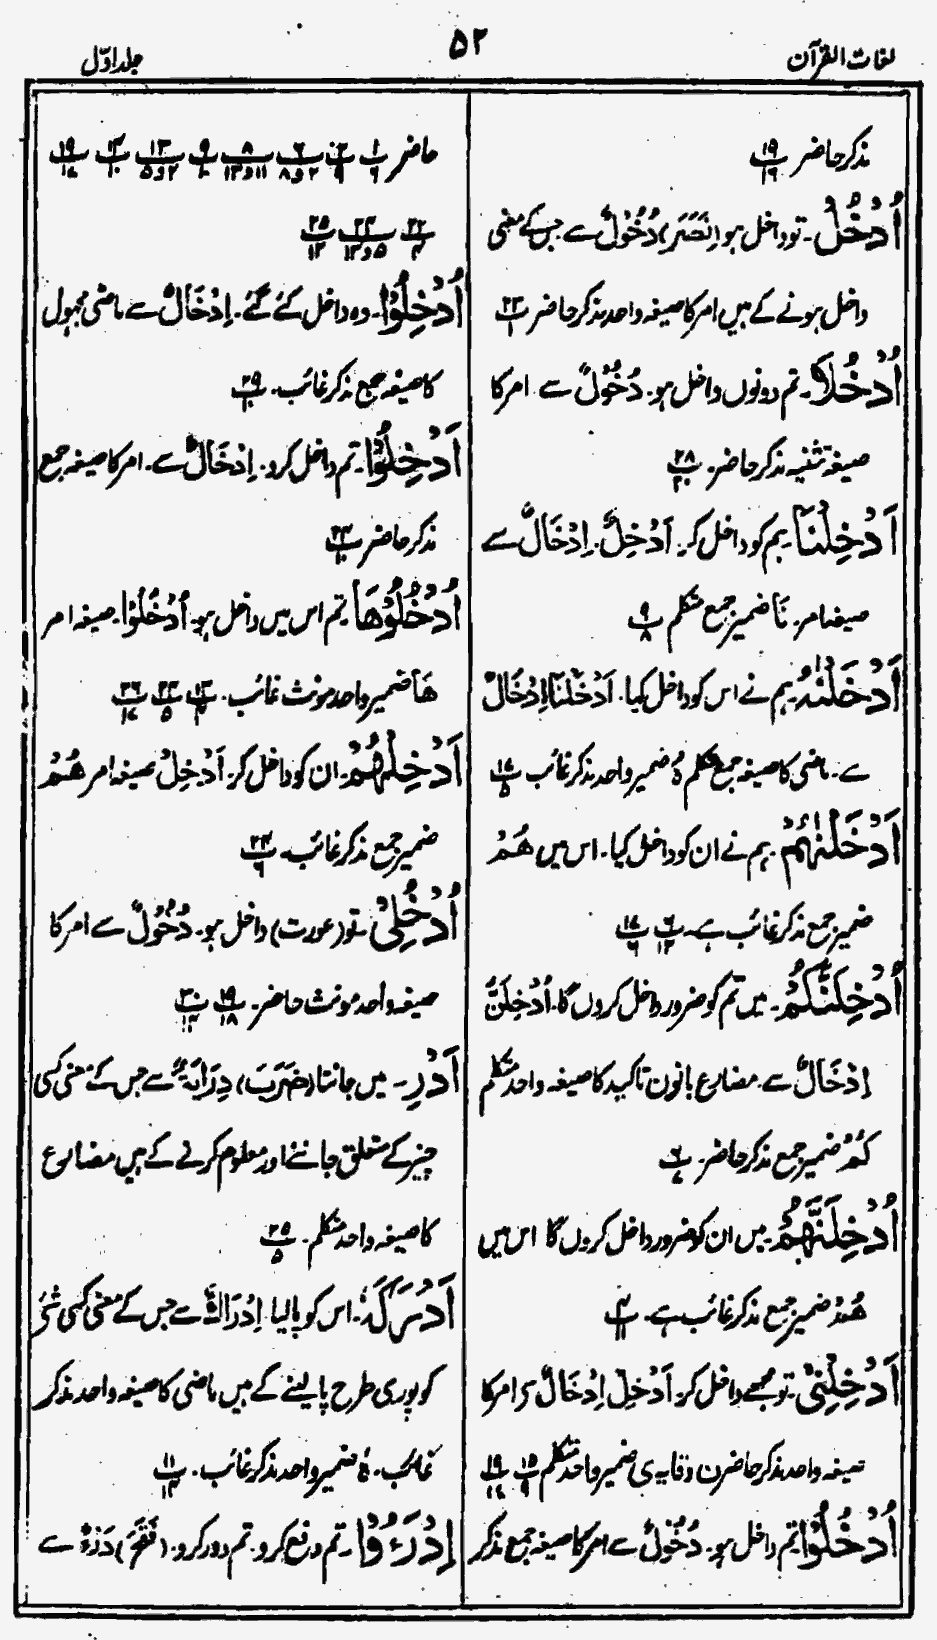 لغات القرآن
۵۲
جلد اوّل
مذکر حاضر ۱۹/۱۶
اُدْخُلْ۔ تو داخل ہو (نَصَرَ) دُخُوْلٌ سے جس کے معنی
داخل ہونے کے ہیں امر کا صیغہ واحد مذکر حاضر ۲۳/۱
اُدْخُلَا۔ تم دونوں داخل ہو۔ دُخُوْلٌ سے امر کا
صیغہ تثنیہ مذکر حاضر۔ ۲۸/۲۰
اَدْخِلْنَا۔ ہم کو داخل کر۔ اَدْخِلْ۔ اِدْخَالٌ سے
صیغہ امر۔ نَا ضمیر جمع متکلم ۹/۸
اَدْخَلْنٰہُ۔ ہم نے اس کو داخل کیا۔ اَدْخَلْنَا اِدْخَالٌ
سے۔ ماضی کا صیغہ جمع متکلم ہُ ضمیر واحد مذکر غائب ۱۷/۵
اَدْخَلْنٰہُمْ۔ ہم نے ان کو داخل کیا۔ اس میں ھُمْ
ضمیر جمع مذکر غائب ہے۔ ۶/۱۳ ۱۷/۶
اُدْخِلَنَّکُمْ۔ میں تم کو ضرور داخل کروں گا۔ اُدْخِلَنَّ
اِدْخَالٌ سے۔ مضارع بانون تاکید کا صیغہ واحد متکلم
کُمْ ضمیر جمع مذکر حاضر۔ ۶/۷
اُدْخِلَنَّھُمْ۔ میں ان کو ضرور داخل کروں گا اس میں
ھُمْ ضمیر جمع مذکر غائب ہے۔ ۴/۱۱
اَدْخِلْنِیْ۔ تو مجھے داخل کر۔ اَدْخِلْ اِدْخَالٌ سے امر کا
صیغہ واحد مذکر حاضر ن وقایہ ی ضمیر واحد متکلم ۱۵/۹ ۱۹/۱۷
اُدْخُلُوْا تم داخل ہو۔ دُخُوْلٌ سے امر کا صیغہ جمع مذکر
حاضر ۱/۶ ۲/۹ ۶/۲و۸ ۸/۱۱و۱۳ ۹/۱۰ ۱۳/۲و۵ ۱۴/۱۰ ۱۹/۱۷
۲۲/۴ ۲۴/۵و۱۳ ۲۵/۱۳
اُدْخِلُوْا۔ وہ داخل کئے گئے۔ اِدْخَالٌ سے ماضی مجہول
کا صیغہ جمع مذکر غائب۔ ۲۹/۱۰
اَدْخِلُوْا۔ تم داخل کرو۔ اِدْخَالٌ سے۔ امر کا صیغہ جمع
مذکر حاضر ۲۴/۱۰
اُدْخُلُوْھَا۔ تم اس میں داخل ہو۔ اُدْخُلُوْا۔ صیغہ امر
ھَا ضمیر واحد مونث غائب۔ ۱۴/۴ ۲۴/۵ ۲۶/۱۷
اَدْخِلْھُمْ۔ ان کو داخل کر۔ اَدْخِلْ صیغہ امر ھُمْ
ضمیر جمع مذکر غائب۔ ۲۴/۶
اُدْخُلِیْ۔ تو (عورت) داخل ہو۔ دُخُوْلٌ سے امر کا
صیغہ واحد مونث حاضر۔ ۱۹/۱۸ ۳۰/۱۴
اَدْرِ۔ میں جانتا (ضَرَبَ) دِرَایَۃٌ سے جس کے معنی کسی
چیز کے متعلق جاننے اور معلوم کرنے کے ہیں مضارع
کا صیغہ واحد متکلم۔ ۲۵/۵
اَدْرَکَہُ۔ اس کو پالیا۔ اِدْرَاکٌ سے جس کے معنی کسی شئی
کو پوری طرح پالینے کے ہیں ماضی کا صیغہ واحد مذکر
غائب۔ ہُ ضمیر واحد مذکر غائب۔ ۱۱/۱۴
اِدْرَءُوْا۔ تم دفع کرو۔ تم دور کرو۔ (فَتَحَ) دَرْءٌ سے